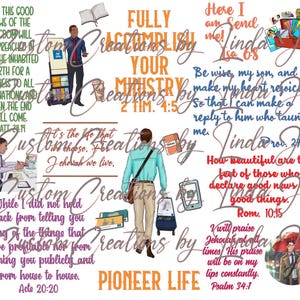 THIS GOOD
WS OF THE
INHABITED
RTH FOR A
NESS TO ALL
END WILL
COME.
FULLY
ACCOMPLISH
YOUR
MINISTRY
TIM. 4:5
Here I
am Send
me!
Isa 6:8
Be wise, my son, and
make my heart rejoice
So that I can make a
reply to him who taunts
me.
It's the life that
we choose, for
Jehovah we live.
How beautiful are the
feet of those who
declare good news of
good things.
Rom. 10:15
While I did not hold
back from telling you
any of the things that
were profitable nor from
teaching you publicly and
from house to house.
Acts 20:20
I will praise
Jehovah at all
times! His praise
will be on my
lips constantly.
Psalm 34:1
PIONEER LIFE
Custom Creations by Linda
Custom Creations by Linda
Custom Creations by Linda
Custom Creations by Linda